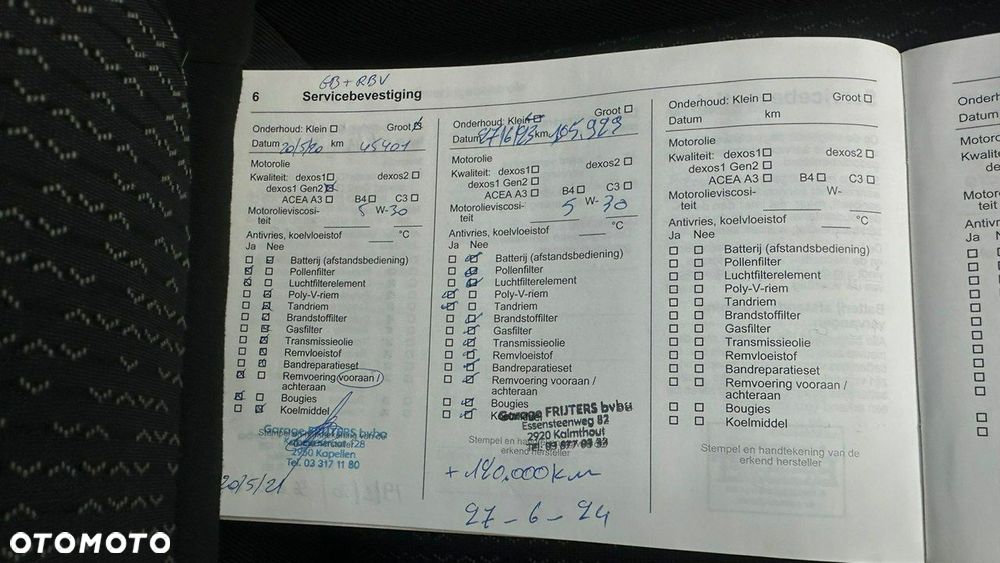 GB + RBV
6 Servicebevestiging
Onderhoud: Klein Groot
Datum 20/5/20 km 45401
Motorolie
Kwaliteit: dexos1 dexos2
dexos1 Gen2
ACEA A3 B4 C3
Motorolieviscosi-
teit 5 W-30
Antivries, koelvloeistof °C
Ja Nee
Batterij (afstandsbediening)
Pollenfilter
Luchtfilterelement
Poly-V-riem
Tandriem
Brandstoffilter
Gasfilter
Transmissieolie
Remvloeistof
Bandreparatieset
Remvoering vooraan /
achteraan
Bougies
Koelmiddel
Garage FRIJTERS bvba
2950 Kapellen
Tel. 03 317 11 80
20/5/21
Onderhoud: Klein Groot
Datum 27/6/23 km 105.923
Motorolie
Kwaliteit: dexos1 dexos2
dexos1 Gen2
ACEA A3 B4 C3
Motorolieviscosi-
teit 5 W- 30
Antivries, koelvloeistof °C
Ja Nee
Batterij (afstandsbediening)
Pollenfilter
Luchtfilterelement
Poly-V-riem
Tandriem
Brandstoffilter
Gasfilter
Transmissieolie
Remvloeistof
Bandreparatieset
Remvoering vooraan /
achteraan
Bougies
Garage FRIJTERS bvba
Essensteenweg 82
2920 Kalmthout
Stempel en handtekening van de
erkend hersteller
+ 140.000 km
27-6-24
Onderhoud: Klein Groot
Datum km
Motorolie
Kwaliteit: dexos1 dexos2
dexos1 Gen2
ACEA A3 B4 C3
Motorolieviscosi-
teit W-
Antivries, koelvloeistof °C
Ja Nee
Batterij (afstandsbediening)
Pollenfilter
Luchtfilterelement
Poly-V-riem
Tandriem
Brandstoffilter
Gasfilter
Transmissieolie
Remvloeistof
Bandreparatieset
Remvoering vooraan /
achteraan
Bougies
Koelmiddel
Stempel en handtekening van de
erkend hersteller
Datum
Ja
OTOMOTO